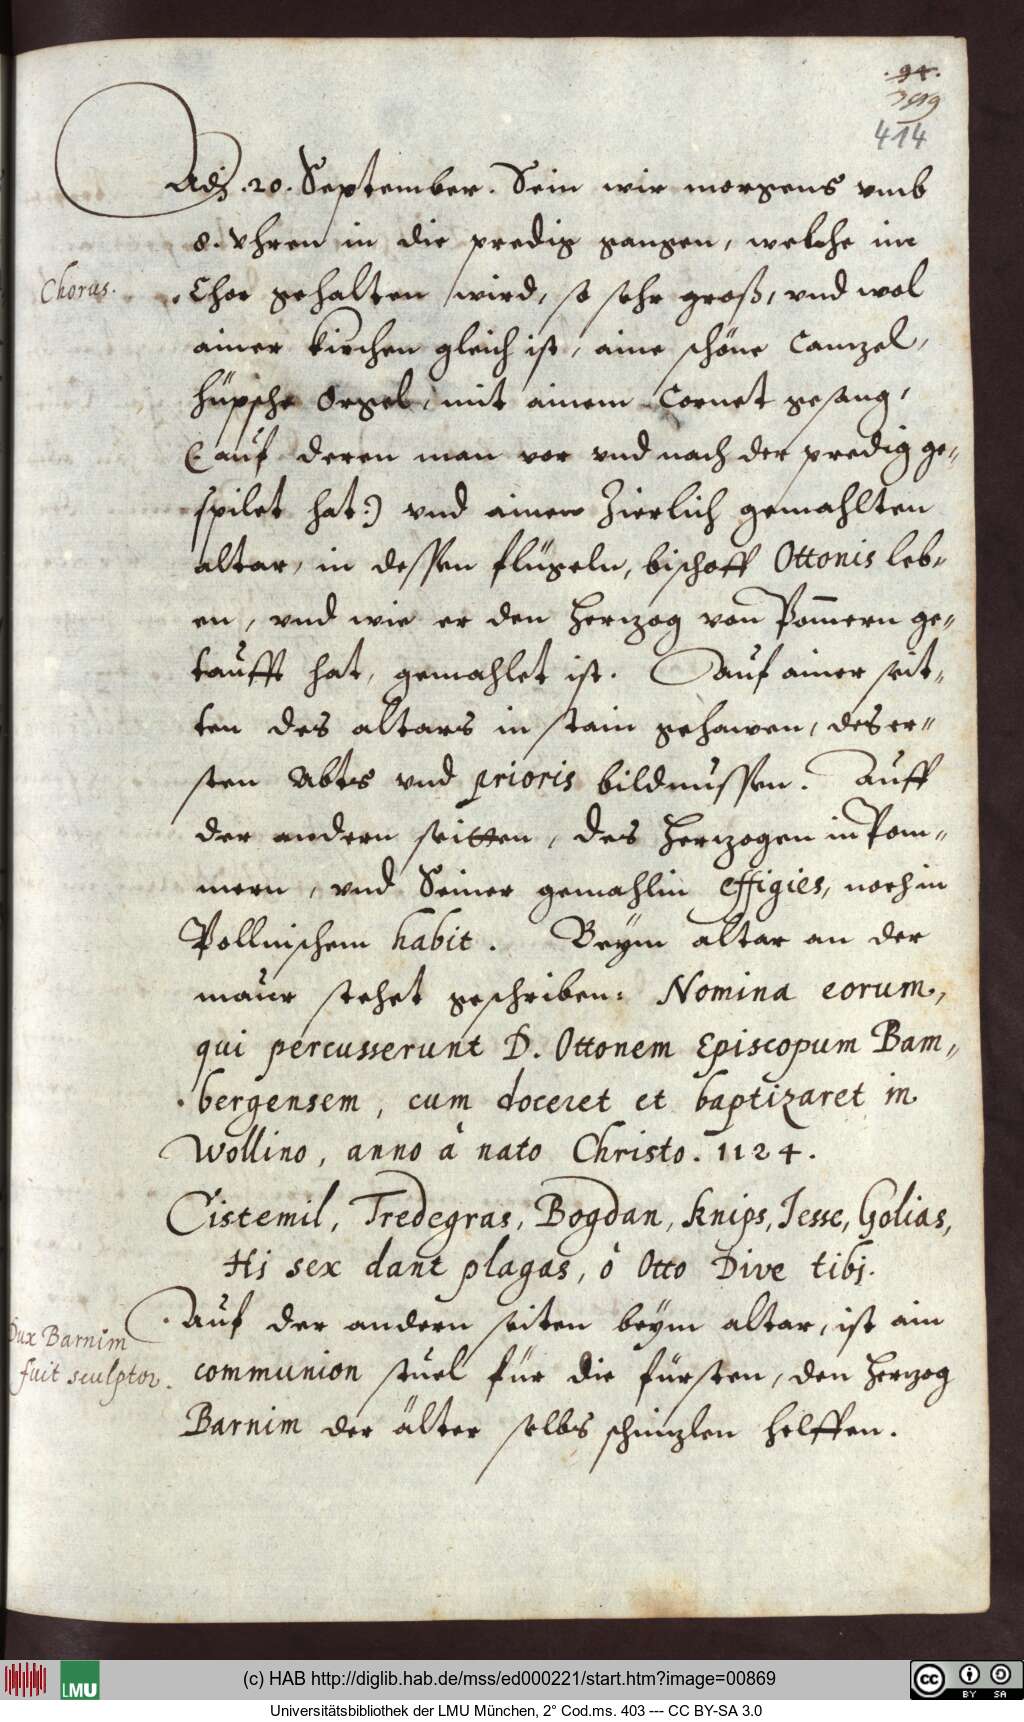 .94.
399
414
Adj .20. September. Sein wir morgens vmb
8. Vhren in die predig gangen, welche im
Chorus.
Chor gehalten wird, so sehr groß, vnd wol
ainer kirchen gleich ist, aine schöne Canzel,
hüpsche Orgel, mit ainem Cornet gesang,
(: auf deren man vor vnd nach der predig ge„
spilet hat:) vnd ainen Zierlich gemahlten
altar, in dessen flügeln, bischoff Ottonis leb„
en, vnd wie er den Herzog von Pom̄ern ge„
taufft hat, gemahlet ist. Auf ainer seit„
ten des altars in stain gehawen, des er„
sten Abts vnd prioris bildnussen. Auff
der andern seitten, des Herzogen in Pom„
mern, vnd Seiner gemahlin effigies, noch in
Pollnischem habit. Beÿm altar an der
maur stehet geschriben: Nomina eorum,
qui percusserunt D. Ottonem Episcopum Bam„
bergensem, cum doceret et baptizaret in
Wollino, anno à nato Christo. 1124.
Cistemil, Tredegras, Bogdan, Knips, Jesse, Golias,
Hi sex dant plagas, ò Otto Dive tibj.
Auf der andern seiten beÿm altar, ist ain
Dux Barnim
fuit sculptor.
communion stuel für die fürsten, den Herzog
Barnim der älter selbs schnizlen helffen.
LMU
(c) HAB http://diglib.hab.de/mss/ed000221/start.htm?image=00869
Universitätsbibliothek der LMU München, 2° Cod.ms. 403 --- CC BY-SA 3.0
cc BY SA